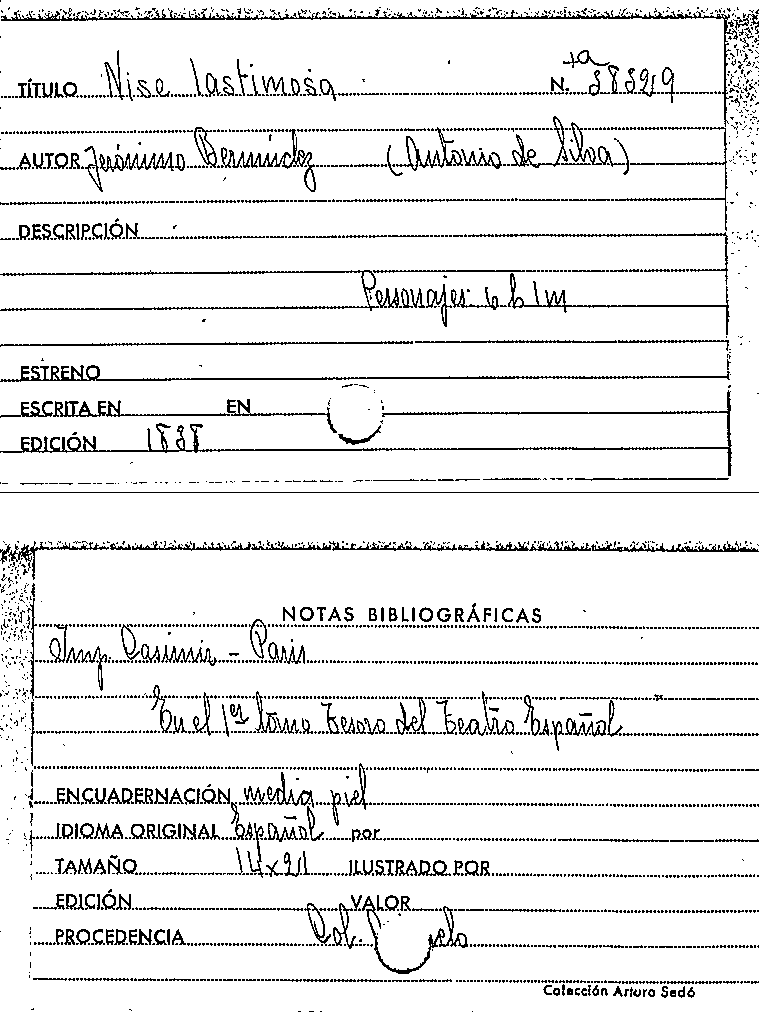 TÍTULO Nise lastimosa N. 38329
AUTOR Jerónimo Bermúdez (Antonio de Silva)
DESCRIPCIÓN
Personajes: 6 h 1 m
ESTRENO
ESCRITA EN EN
EDICIÓN 1838
NOTAS BIBLIOGRÁFICAS
Imp. Casimir - Paris
En el 1er tomo Tesoro del Teatro Español
ENCUADERNACIÓN media piel
IDIOMA ORIGINAL Español por
TAMAÑO 14x21 ILUSTRADO POR
EDICIÓN VALOR
PROCEDENCIA Col.
Colección Arturo Sedó